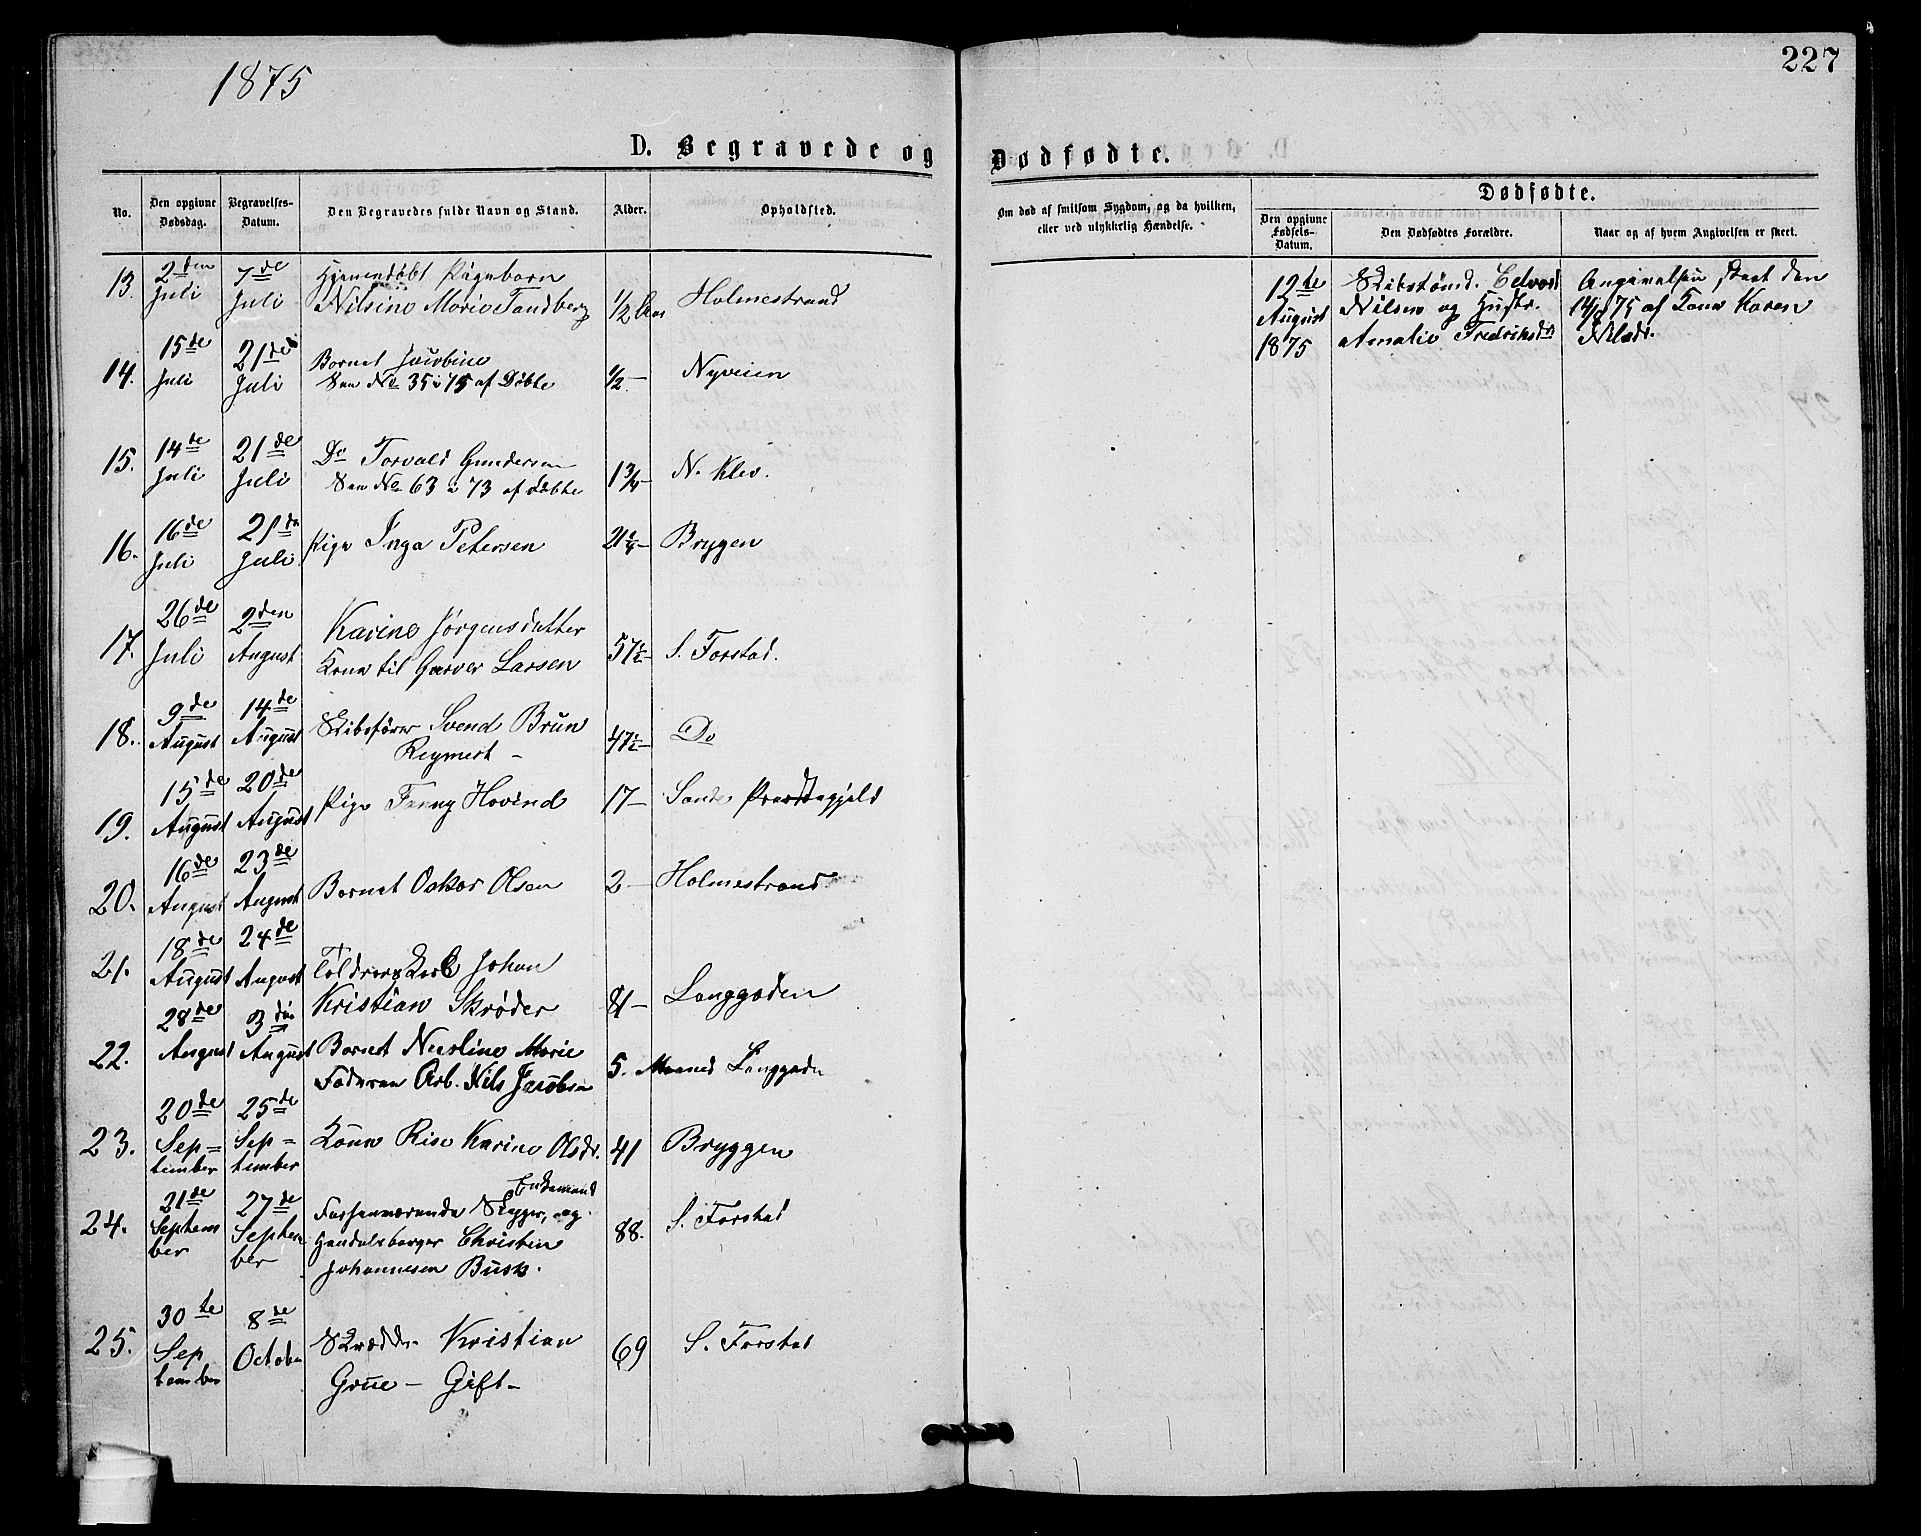 1875
227
D. Begravede og Dødfødte.
No.
Den opgivne Dødsdag.
Begravelses-Datum.
Den Begravedes fulde Navn og Stand.
Alder.
Opholdsted.
Om død af smitsom Sygdom, og da hvilken, eller ved ulykkelig Hændelse.
Dødfødte.
Den opgivne Fødsels-Datum.
Den Dødfødtes Forældre.
Naar og af hvem Angivelsen er skeet.
13. 2den Juli 7de Juli Hjemmedøbt Pigebarn
Nilsine Marie Tandberg 1/2 Aar Holmestrand
14. 15de Juli 21de Juli Barnet Jacobine
See No 35 i 75 af Døbte 1/2 – Nyveien
15. 14de Juli 21de Juli Do Torvald Gundersen
See No 63 i 73 af døbte 1 3/4 – N. Klev.
16. 16de Juli 21de Juli Pige Inga Petersen 21 1/4 – Bryggen
17. 26de Juli 2den August Karine Jørgensdatter
Kone til Garver Larsen 57 1/2 – S. Forstad.
18. 9de August 14de August Skibsfører Svend Brun
Reymert – 47 1/2 – Do
19. 15de August 20de August Pige Fanny Hovind 17 – Sande Præstegjeld
20. 16de August 23de August Barnet Oskar Olsen 2 – Holmestrand
21. 18de August 24de August Toldroer Carl Johan
Kristian Skrøder 81 – Langgaden
22. 28de August 3die August Barnet Neeline Marie
Faderen Arb. Nils Jacobsen 5. Maaned Langgaden
23. 20de September 25de September Kone Rise Karine Olsdr. 41 Bryggen
Enkemand
24. 21de September 27de September Forhenværende Skipper, og
Handelsborger Christen
Johannesen Busk. 88. S. Forstad
25. 30te September 8de October Skrædder Kristian
Grue – Gift – 69 S. Forstad
12te Skibstømd. Edvard Angivelsen skeet den
August Nilsen og Hustr. 14/8 75 af Kone Karen
1875 Amalie Fredriksdr Nilsdr.